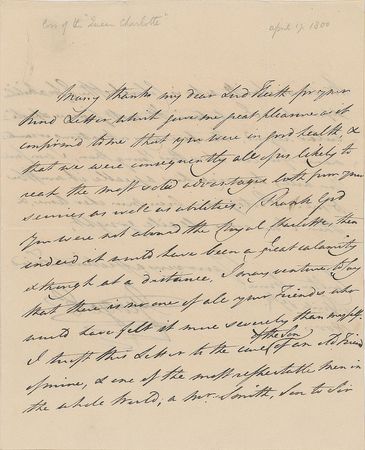 Loss of the "Queen Charlotte"
april 17. 1800
Many thanks my dear Lord Keith for your
kind Letter which gave me great pleasure as it
confirmed to me that you were in good health, &
that we were consequently all of us likely to
reap the most solid advantages both from your
services as well as abilities. Thank God
you were not aboard the Royal Charlotte, then
indeed it would have been a great calamity
& though at a distance, I may venture to say
that there is no one of all your Friends who
would have felt it more severely than myself.
of the Son
I trust this Letter to the care of an old Friend
of mine, & one of the most respectable men in
the whole World; a Mr. Smith, Son to Sir